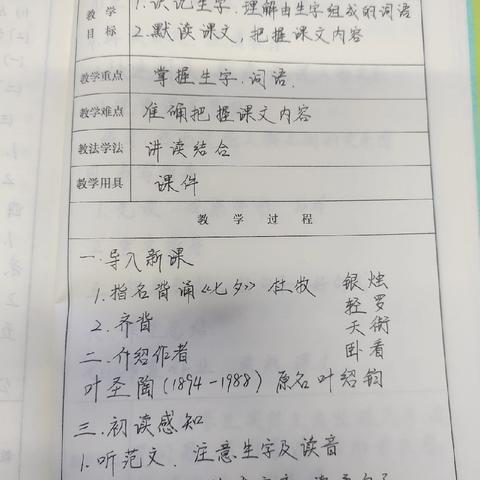 教学目标
1.识记生字.理解由生字组成的词语
2.默读课文,把握课文内容
教学重点 掌握生字.词语.
教学难点 准确把握课文内容
教法学法 讲读结合
教学用具 课件
教 学 过 程
一.导入新课
1.指名背诵《七夕》杜牧 银烛
轻罗
2.齐背 天街
二.介绍作者 卧看
叶圣陶(1894-1988)原名叶绍钧
三.初读感知
1.听范文.注意生字及读音